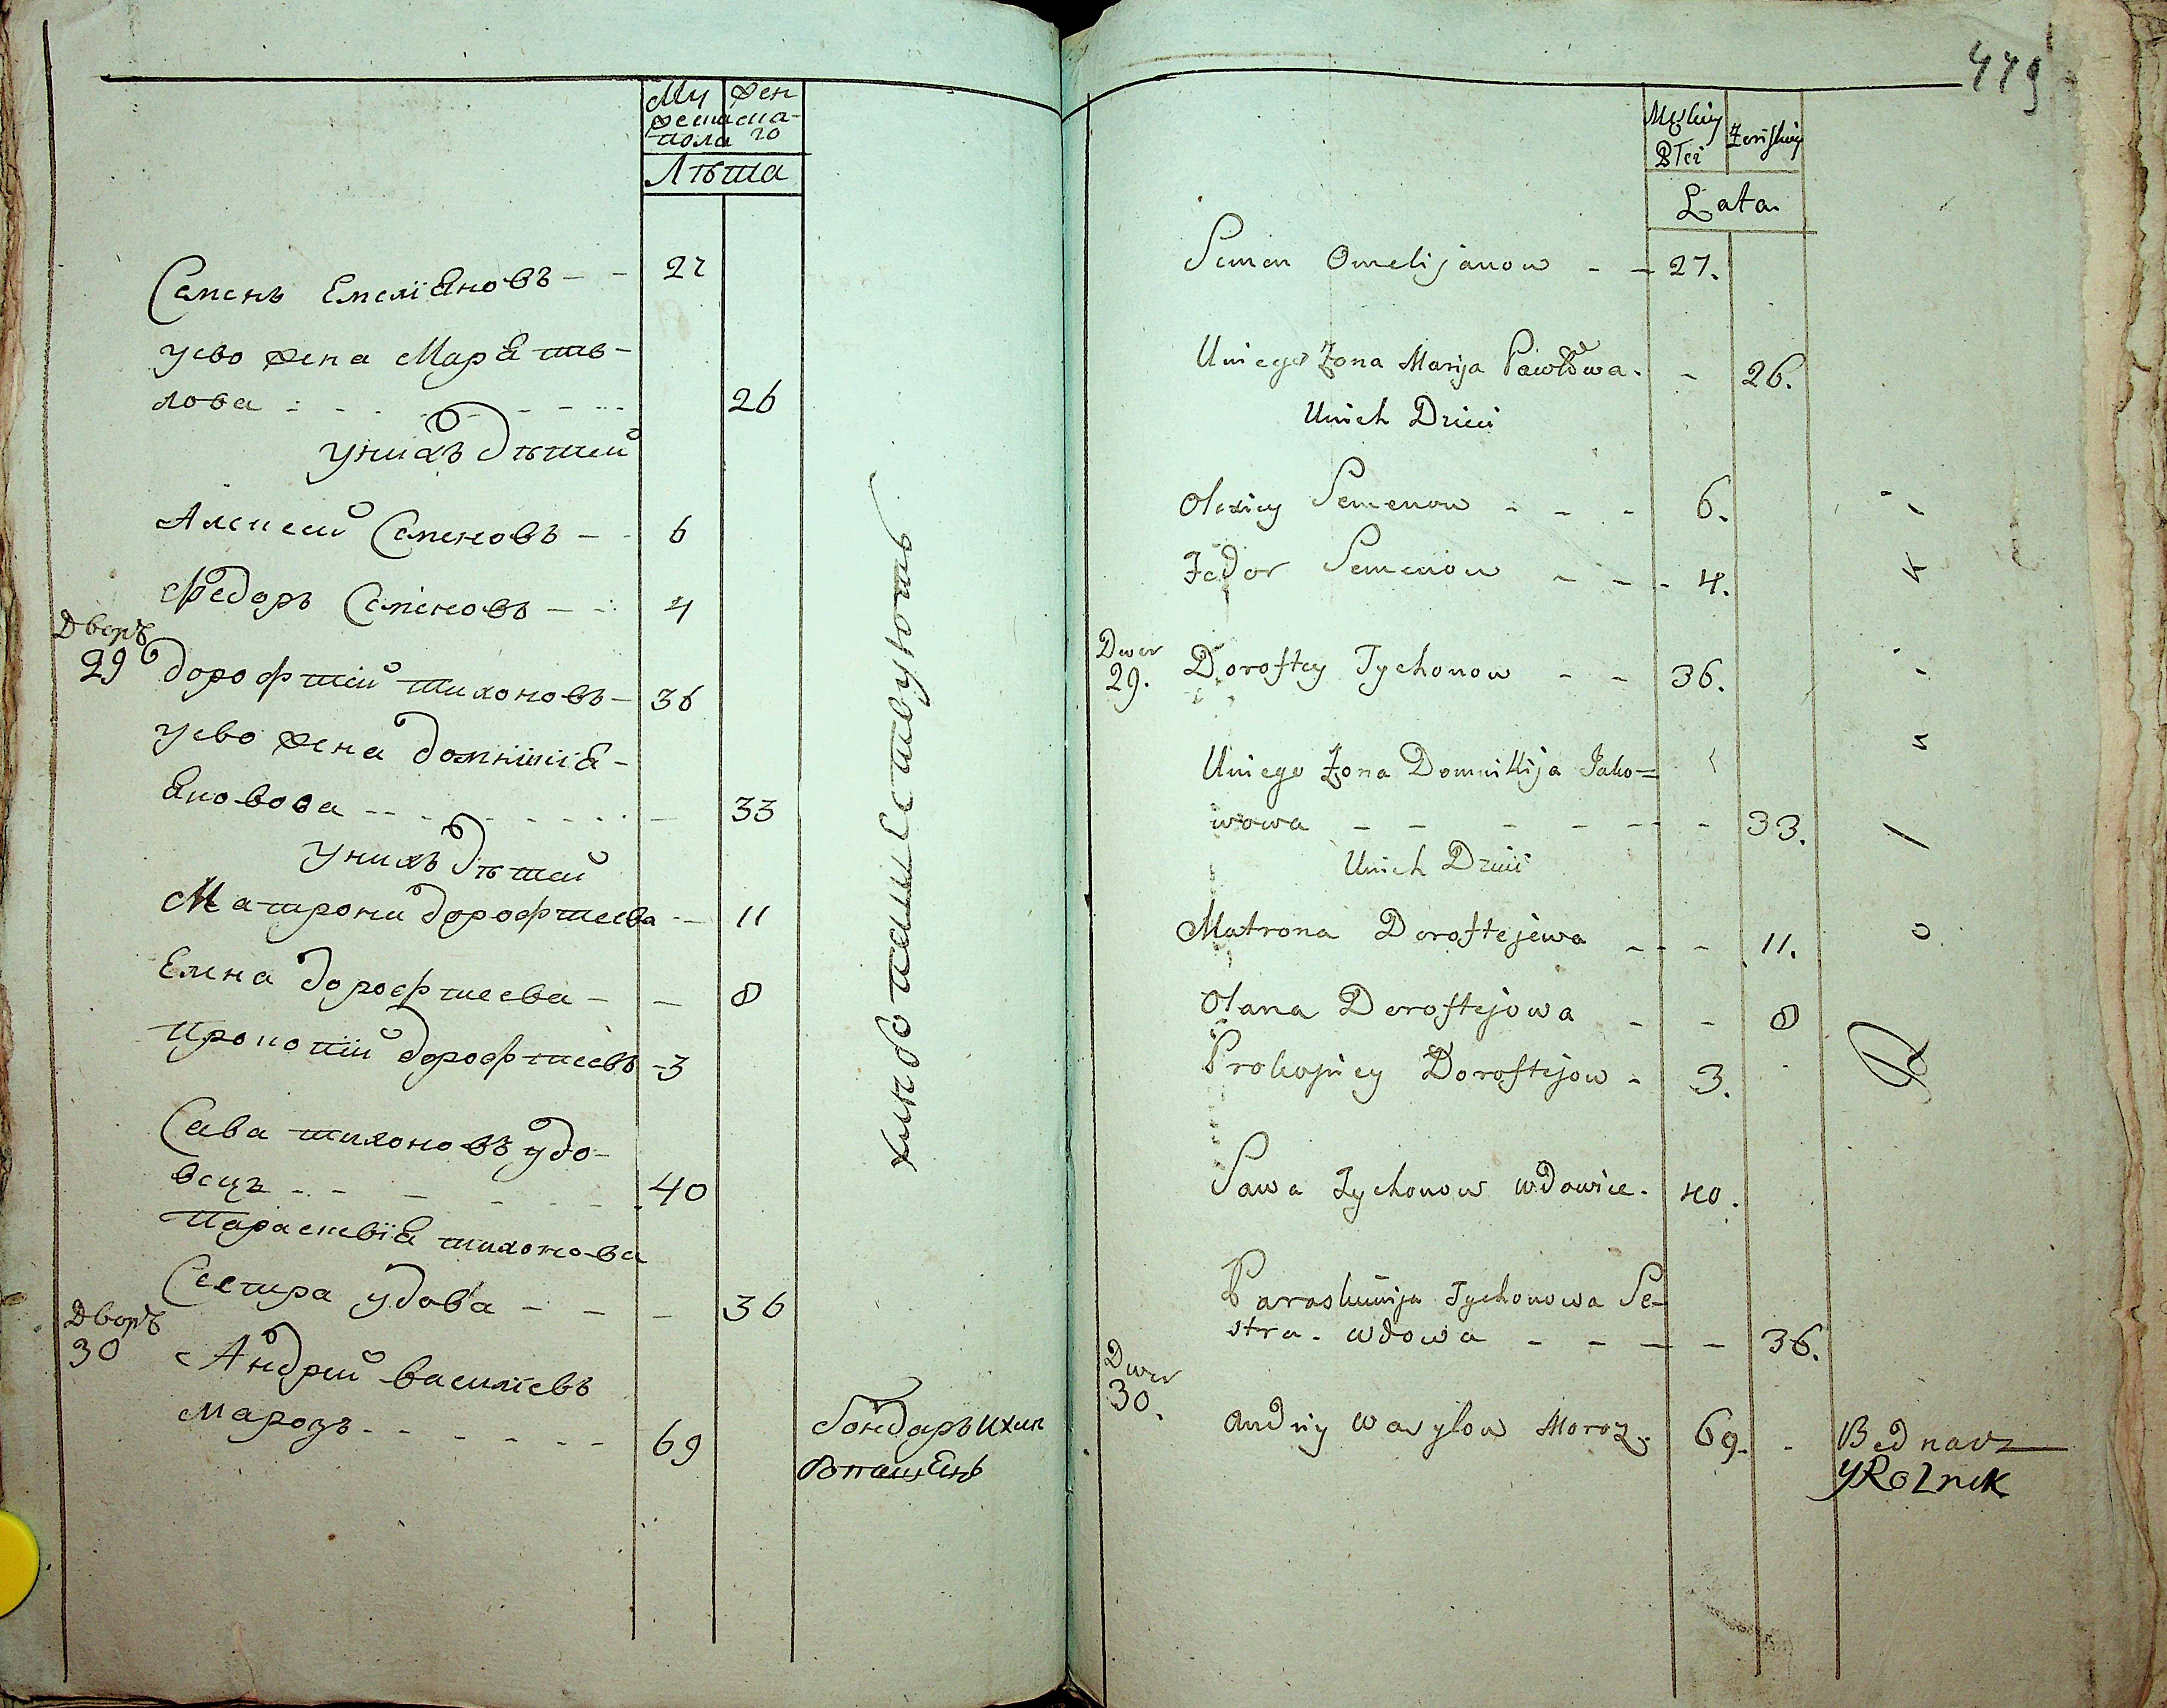 Му Жен
жеска ска-
пола го
Лѣта
Семенъ Емелїяновъ - - 27
у ево жена Маря пав-
лова - - - 26
у нихъ дѣтей
Алексей Семеновъ - - 6
Федоръ Семеновъ - - 4
Дворъ
29 дорофтей тихоновъ - 36
у ево жена домникїя
Яковова - - - 33
у нихъ дѣтей
Матрона дорофтеева - 11
Елена дорофтеева - - 8
Прокопій дорофтеевъ - 3
Сава тихоновъ удо-
вецъ - - - 40
Параскевїя тихонова
Сестра удова - - - 36
Дворъ
30 Андрей васильевъ
Марозъ - - - 69
бондаръ и хлі
бопашецъ
хлѣбопашествуютъ
449
Męskiey Żeńskiey
Płci
Lata.
Semen Omelijanow - - 27.
U niego Żona Marija Pawłowa. - 26.
U nich Dzieci
Olexiey Semenow - - - 6.
Fedor Semenow - - - 4.
Dwor
29. Doroftey Tychonow - - 36.
U niego Żona Domnikija Jako=
wowa - - - - - - 33.
U nich Dzieci
Matrona Doroftejewa - - - 11.
Olana Doroftejowa - - 8
Prokopiey Doroftejow - 3.
Sawa Tychonow wdowiec. 40.
Paraskiewija Tychonowa Se-
stra. wdowa - - - - 36.
Dwor
30. Andriy Wasylow Moroz. 69. - Bednarz
y Rolnik
R
o
l
n
i
k
i